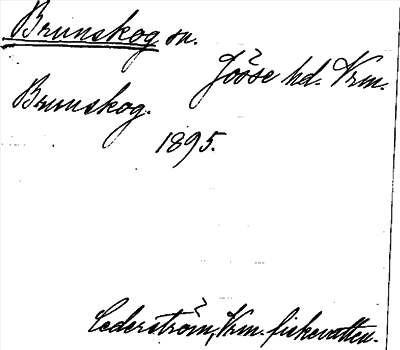 Brunskog sn.
Jösse hd. Vrm.
Brunskog.
1895.
Cederström, Vrm. fiskevatten.